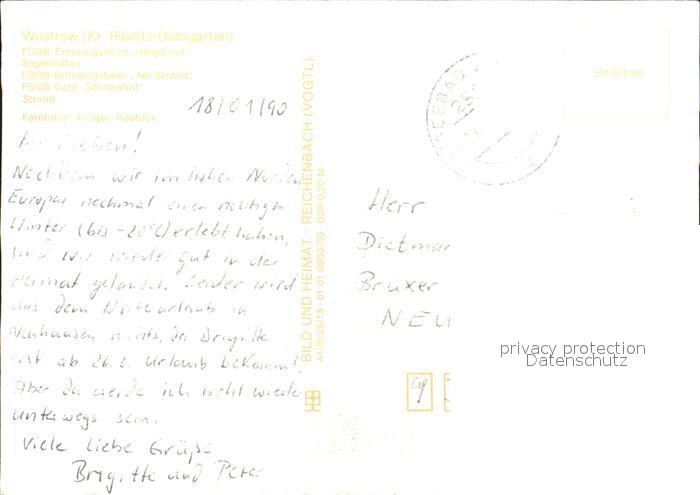 Wustrow (Kr. Ribnitz-Damgarten)
FDGB-Erholungsheim „Helgoland"
Seglerhafen
FDGB-Erholungsheim „Am Strand"
FDGB-Café „Sonnenhof"
Strand
Farbfotos: Krüger, Rostock
18/01/90
Ihr Lieben!
Nachdem wir im hohen Norden
Europas nochmal einen richtigen
Winter (bis -20°C) erlebt haben,
sind wir wieder gut in der
Heimat gelandet. Leider wird
aus dem Winterurlaub in
Neuhausen nichts, da Brigitte
erst ab 26.2. Urlaub bekommt.
Aber da werde ich nicht wieder
unterwegs sein.
Viele liebe Grüße
Brigitte und Peter
BILD UND HEIMAT · REICHENBACH (VOGTL)
A1/III/26/13 · 01 01 0950/03 · DDR 0,20 M
301301/88
Herr
Dietmar
Brüxer
NEU
privacy protection
Datenschutz